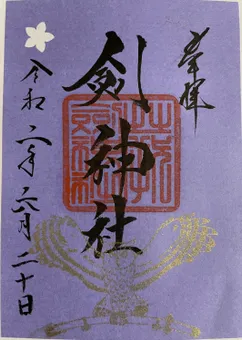 奉拝
劍神社
令和二年六月二十日